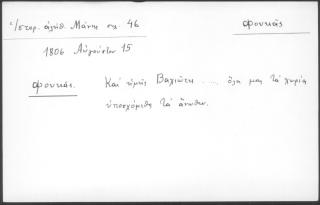 Ἱστορ. ἀλήθ. Μάνης σελ. 46
φουκᾶς
1806 Αὐγούστου 15
φουκᾶς.
Καὶ ἡμεῖς Βαχιώτη ..... ὅλα μας τὰ χωρία
ὑποσχόμεθα τὰ ἄνωθεν.